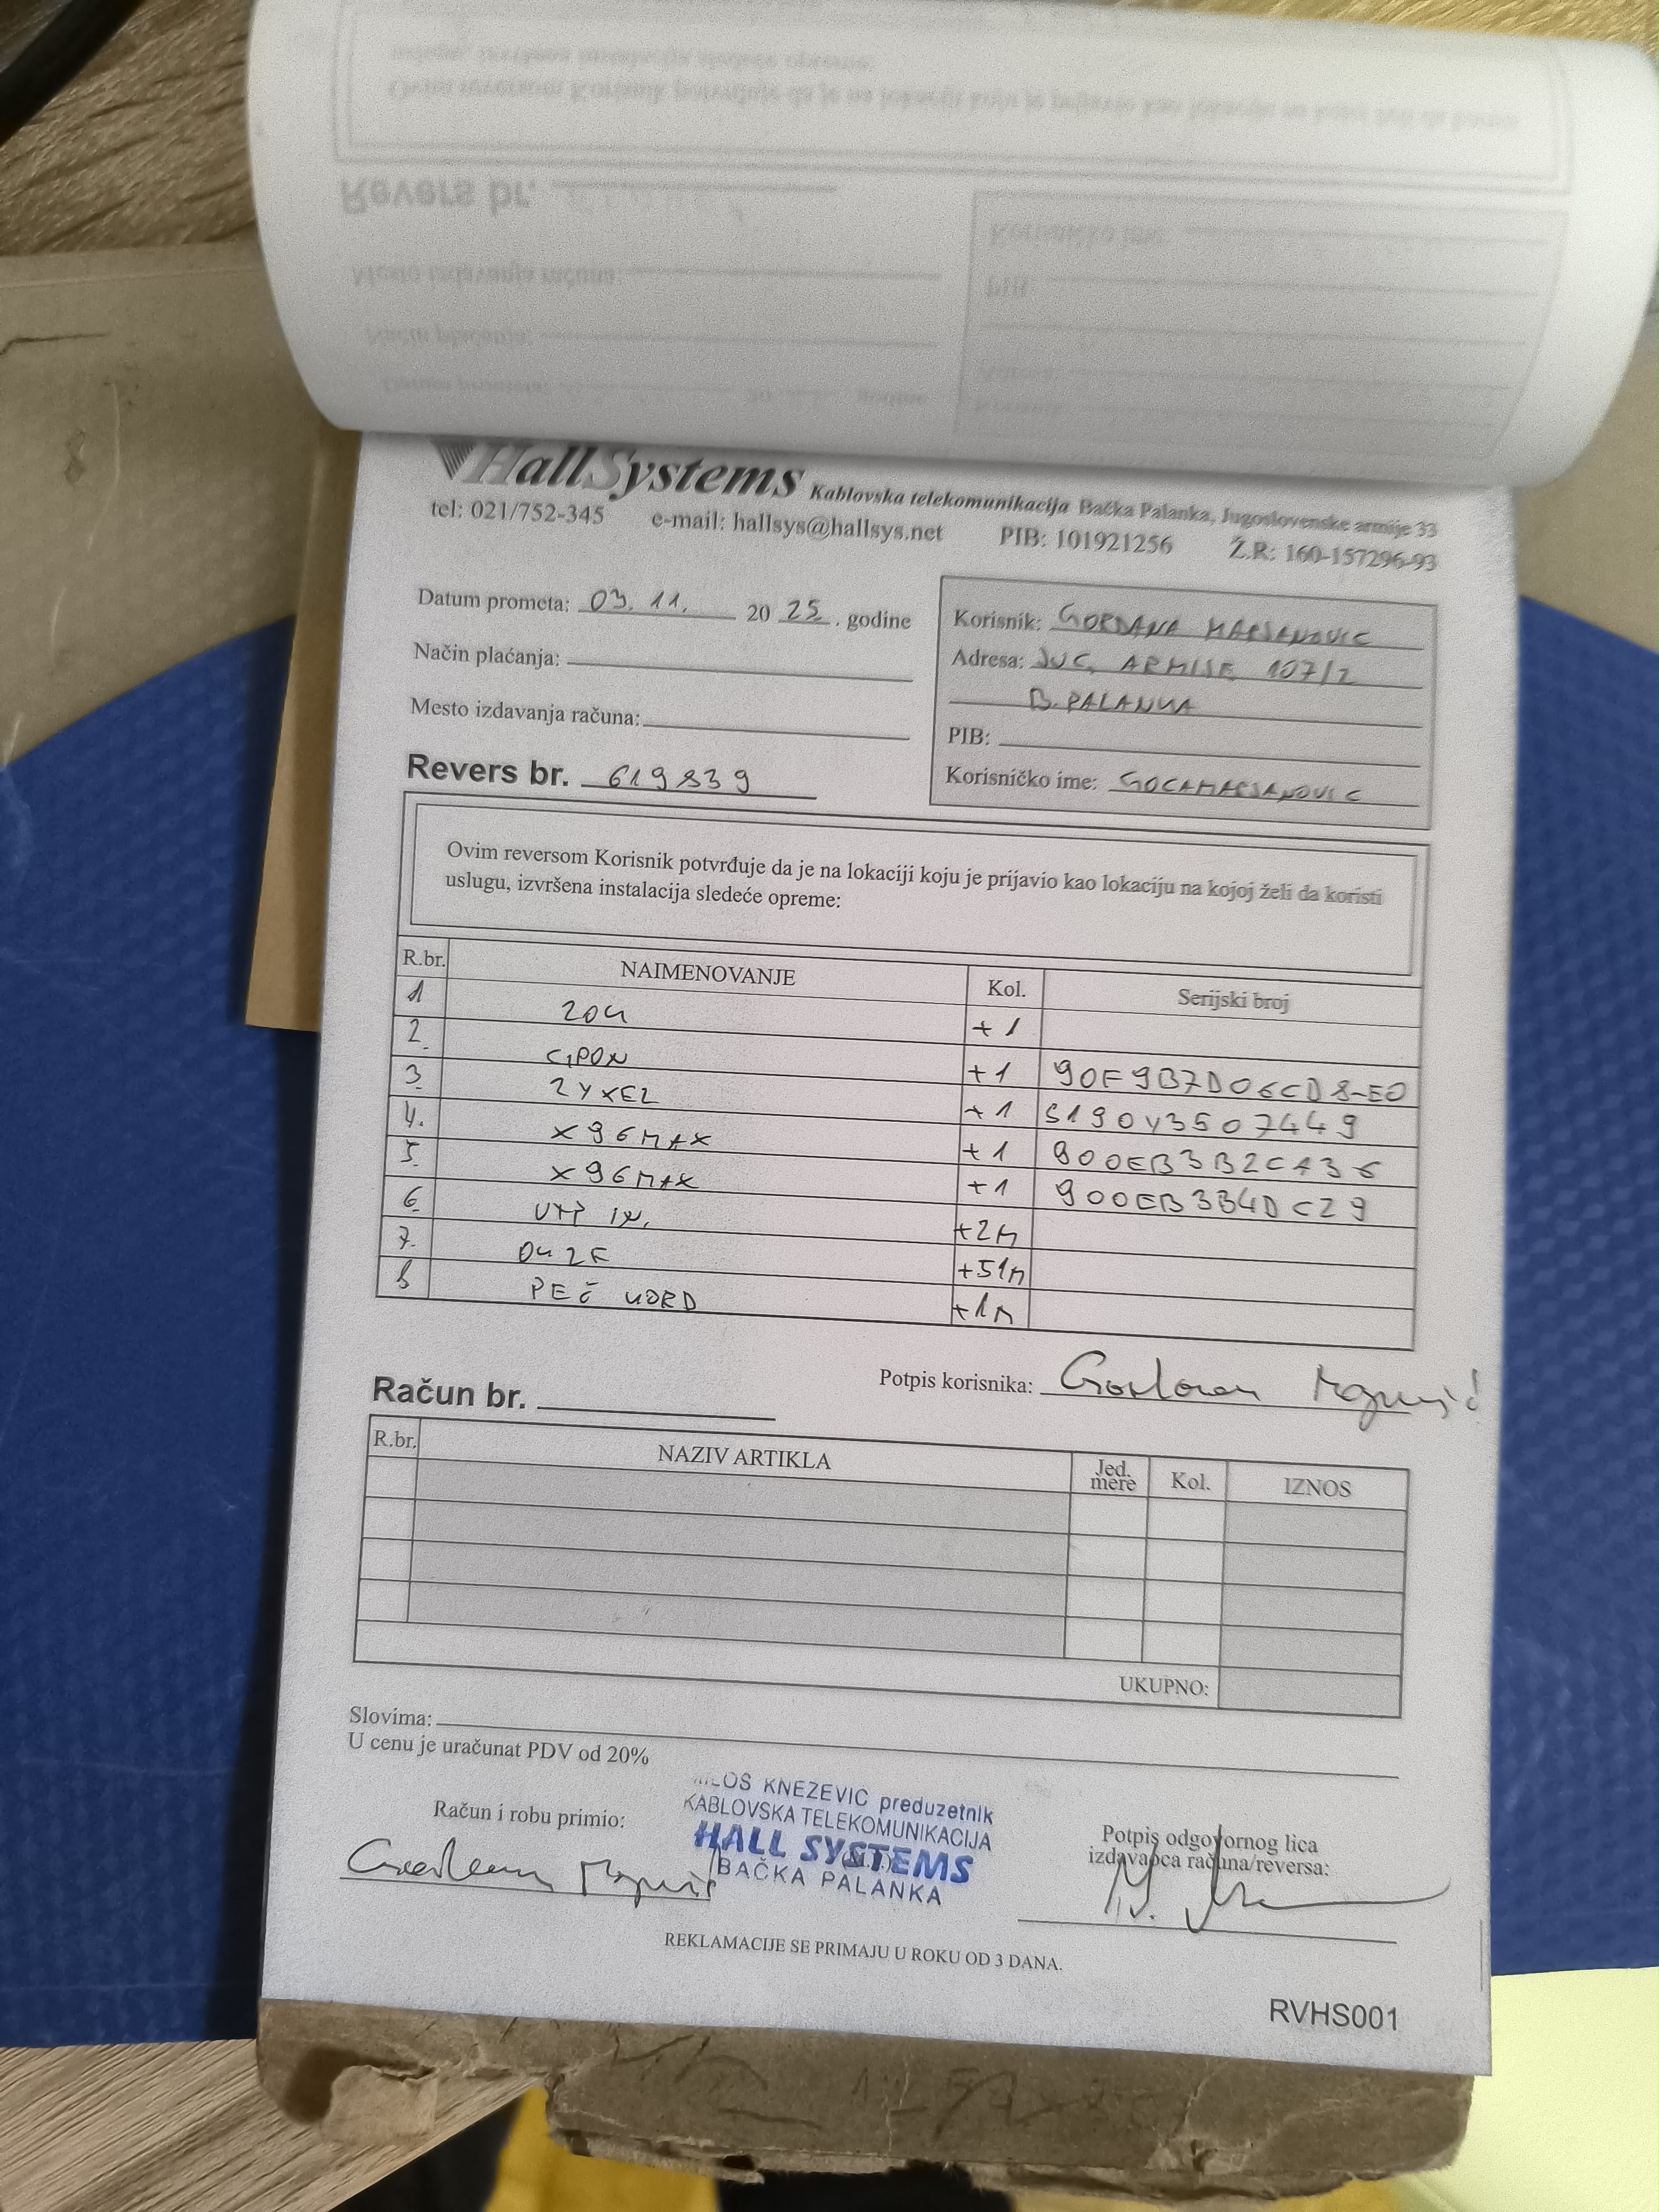 HallSystems Kablovska telekomunikacija Bačka Palanka, Jugoslovenske armije 33
tel: 021/752-345 e-mail: hallsys@hallsys.net PIB: 101921256 Ž.R: 160-157296-93
Datum prometa: 03. 11. 20 25. godine
Način plaćanja:
Mesto izdavanja računa:
Korisnik: GORDANA MARJANOVIC
Adresa: JUG. ARMIJE 107/2
B. PALANKA
PIB:
Korisničko ime: GOCAMARJANOVIC
Revers br. 619839
Ovim reversom Korisnik potvrđuje da je na lokaciji koju je prijavio kao lokaciju na kojoj želi da koristi
uslugu, izvršena instalacija sledeće opreme:
R.br. NAIMENOVANJE Kol. Serijski broj
1 ZOK +1
2. GPON +1 90F9B7D06CD8-E0
3. ZYXEL +1 S190Y3507449
4. X96MAX +1 900EB3B2CA36
5. X96MAX +1 900EB3B4DC29
6 UTP IN. +2M
7. OK 2F +51M
8 PEČ KORD +1M
Potpis korisnika: Gordana
Račun br.
R.br. NAZIV ARTIKLA Jed. mere Kol. IZNOS
UKUPNO:
Slovima:
U cenu je uračunat PDV od 20%
Račun i robu primio:
KNEZEVIC preduzetnik
KABLOVSKA TELEKOMUNIKACIJA
HALL SYSTEMS
BAČKA PALANKA
Potpis odgovornog lica
izdavaoca računa/reversa:
REKLAMACIJE SE PRIMAJU U ROKU OD 3 DANA.
RVHS001